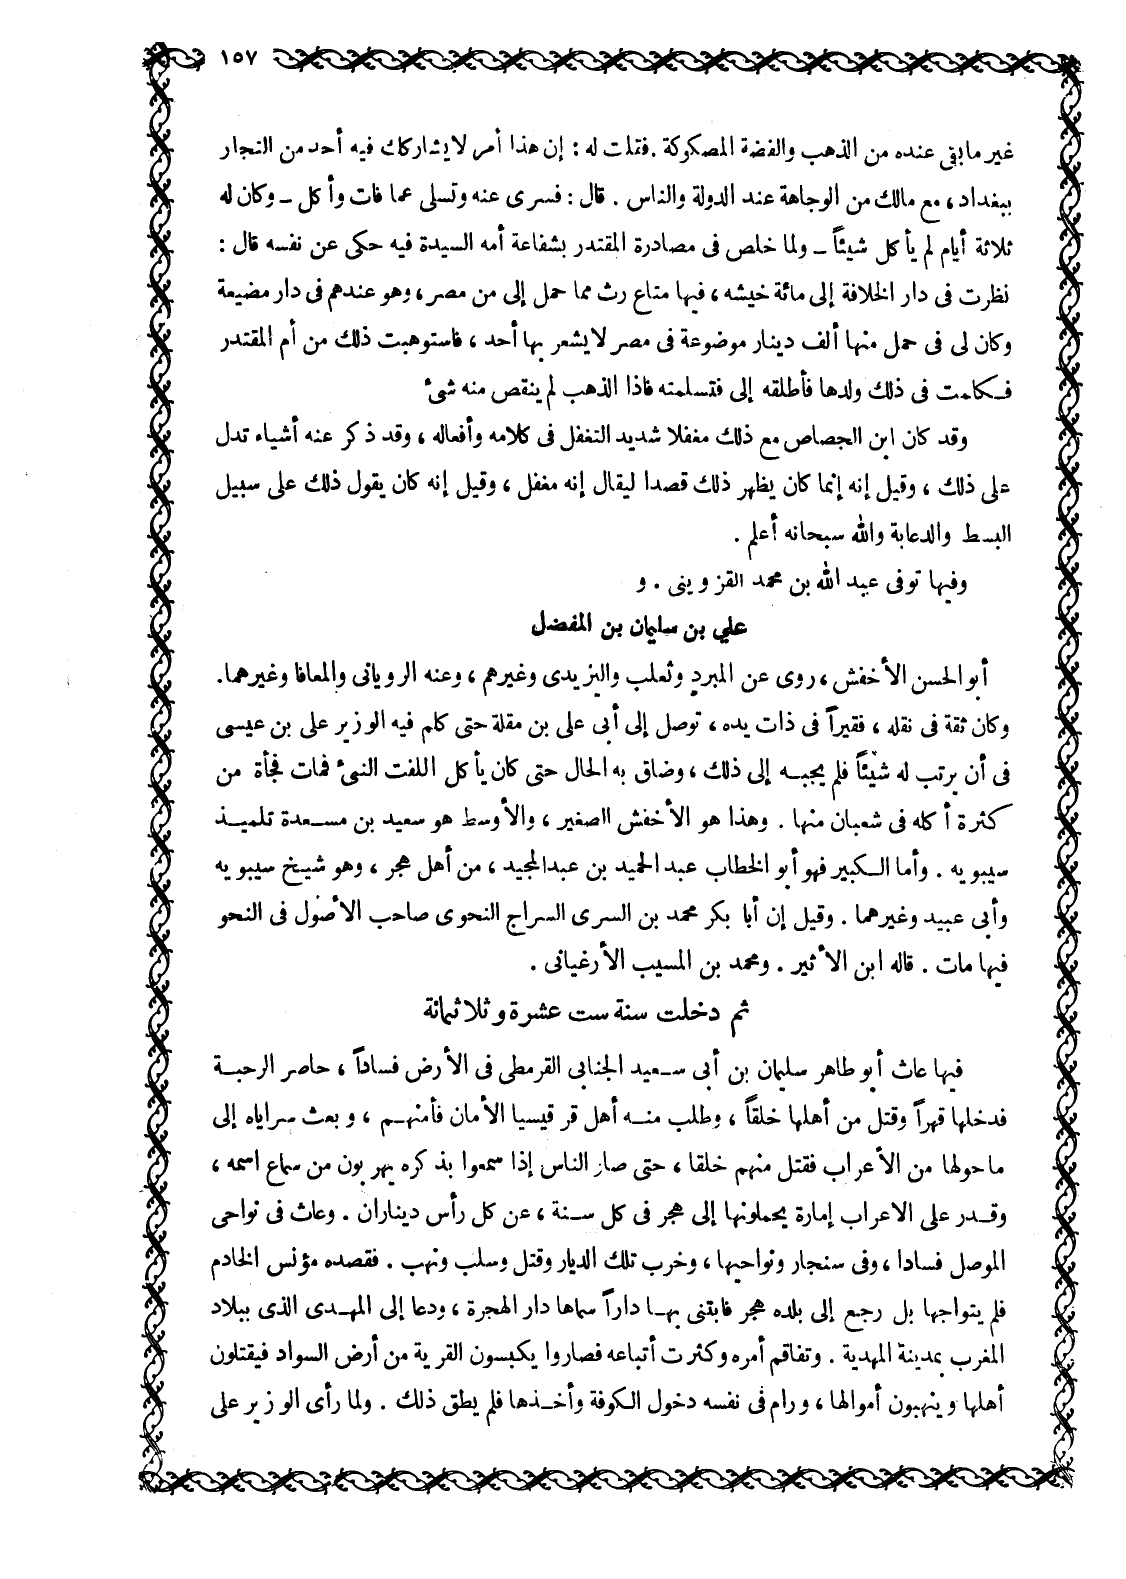 ١٥٧
غير ما بقى عنده من الذهب والفضة المصكوكة . فقلت له : إن هذا أمر لا يشاركك فيه أحد من التجار
ببغداد ، مع مالك من الوجاهة عند الدولة والناس . قال : فسرى عنه وتسلى عما فات وأكل ــ وكان له
ثلاثة أيام لم يأكل شيئاً ــ ولما خلص فى مصادرة المقتدر بشفاعة أمه السيدة فيه حكى عن نفسه قال :
نظرت فى دار الخلافة إلى مائة خيشه ، فيها متاع رث مما حمل إلى من مصر ، وهو عندهم فى دار مضيعة
وكان لى فى حمل منها ألف دينار موضوعة فى مصر لا يشعر بها أحد ، فاستوهبت ذلك من أم المقتدر
فكلمت فى ذلك ولدها فأطلقه إلى فتسلمته فاذا الذهب لم ينقص منه شئ
وقد كان ابن الجصاص مع ذلك مغفلا شديد التغفل فى كلامه وأفعاله ، وقد ذكر عنه أشياء تدل
على ذلك ، وقيل إنه إنما كان يظهر ذلك قصدا ليقال إنه مغفل ، وقيل إنه كان يقول ذلك على سبيل
البسط والدعابة والله سبحانه أعلم .
وفيها توفى عبد الله بن محمد القزوينى . و
علي بن سليمان بن المفضل
أبو الحسن الأخفش ، روى عن المبرد وثعلب واليزيدى وغيرهم ، وعنه الرويانى والمعافا وغيرهما .
وكان ثقة فى نقله ، فقيراً فى ذات يده ، توصل إلى أبى على بن مقلة حتى كلم فيه الوزير على بن عيسى
فى أن يرتب له شيئاً فلم يجبه إلى ذلك ، وضاق به الحال حتى كان يأكل اللفت النىء فمات فجأة من
كثرة أكله فى شعبان منها . وهذا هو الأخفش الصغير ، والأوسط هو سعيد بن مسعدة تلميذ
سيبويه . وأما الكبير فهو أبو الخطاب عبد الحميد بن عبد المجيد ، من أهل هجر ، وهو شيخ سيبويه
وأبى عبيد وغيرهما . وقيل إن أبا بكر محمد بن السرى السراج النحوى صاحب الأصول فى النحو
فيها مات . قاله ابن الأثير . ومحمد بن المسيب الأرغيانى .
ثم دخلت سنة ست عشرة وثلاثمائة
فيها عاث أبو طاهر سليمان بن أبى سعيد الجنابى القرمطى فى الأرض فساداً ، حاصر الرحبة
فدخلها قهراً وقتل من أهلها خلقاً ، وطلب منه أهل قرقيسيا الأمان فأمنهم ، وبعث سراياه إلى
ما حولها من الأعراب فقتل منهم خلقا ، حتى صار الناس إذا سمعوا بذكره يهربون من سماع اسمه ،
وقدر على الاعراب إمارة يحملونها إلى هجر فى كل سنة ، عن كل رأس ديناران . وعاث فى نواحى
الموصل فسادا ، وفى سنجار ونواحيها ، وخرب تلك الديار وقتل وسلب ونهب . فقصده مؤنس الخادم
فلم يتواجها بل رجع إلى بلده هجر فابتنى بها داراً سماها دار الهجرة ، ودعا إلى المهدى الذى ببلاد
المغرب بمدينة المهدية . وتفاقم أمره وكثرت أتباعه فصاروا يكبسون القرية من أرض السواد فيقتلون
أهلها وينهبون أموالها ، ورام فى نفسه دخول الكوفة وأخذها فلم يطق ذلك . ولما رأى الوزير على